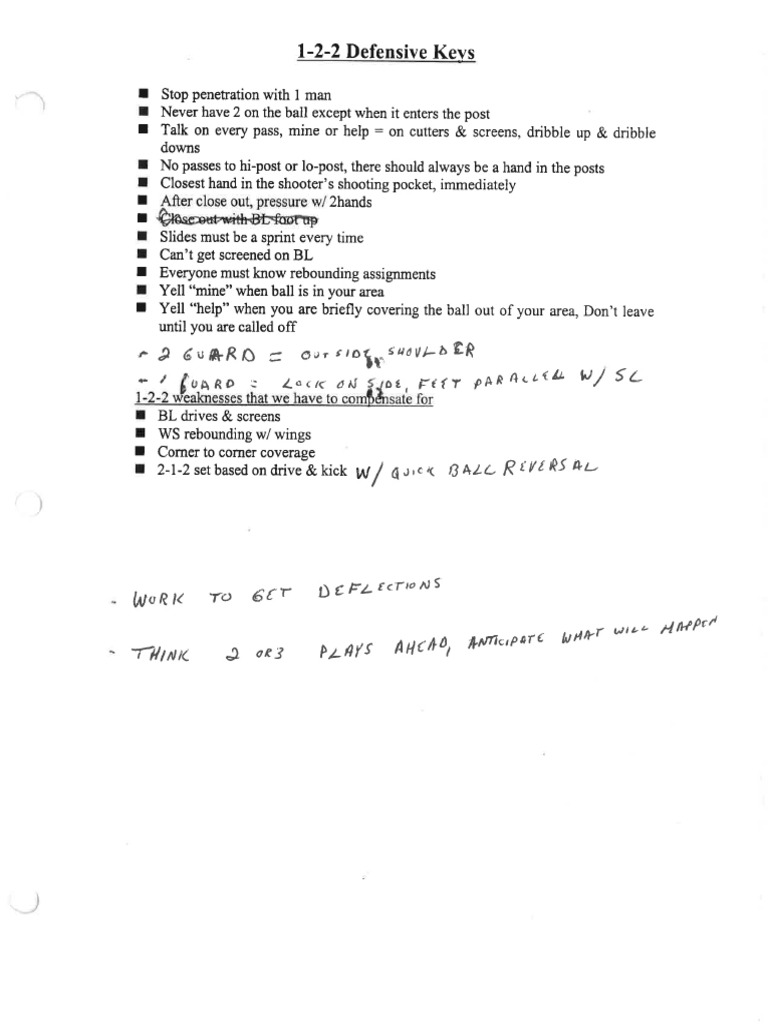 1-2-2 Defensive Keys
■ Stop penetration with 1 man
■ Never have 2 on the ball except when it enters the post
■ Talk on every pass, mine or help = on cutters & screens, dribble up & dribble
downs
■ No passes to hi-post or lo-post, there should always be a hand in the posts
■ Closest hand in the shooter's shooting pocket, immediately
■ After close out, pressure w/ 2hands
■ Close out with BL foot up
■ Slides must be a sprint every time
■ Can't get screened on BL
■ Everyone must know rebounding assignments
■ Yell "mine" when ball is in your area
■ Yell "help" when you are briefly covering the ball out of your area, Don't leave
until you are called off
- 2 GUARD = OUTSIDE SHOULDER
- 1 GUARD = LOCK ON SIDE, FEET PARALLEL W/ SL
1-2-2 weaknesses that we have to compensate for
■ BL drives & screens
■ WS rebounding w/ wings
■ Corner to corner coverage
■ 2-1-2 set based on drive & kick W/ QUICK BALL REVERSAL
- WORK TO GET DEFLECTIONS
- THINK 2 OR 3 PLAYS AHEAD, ANTICIPATE WHAT WILL HAPPEN